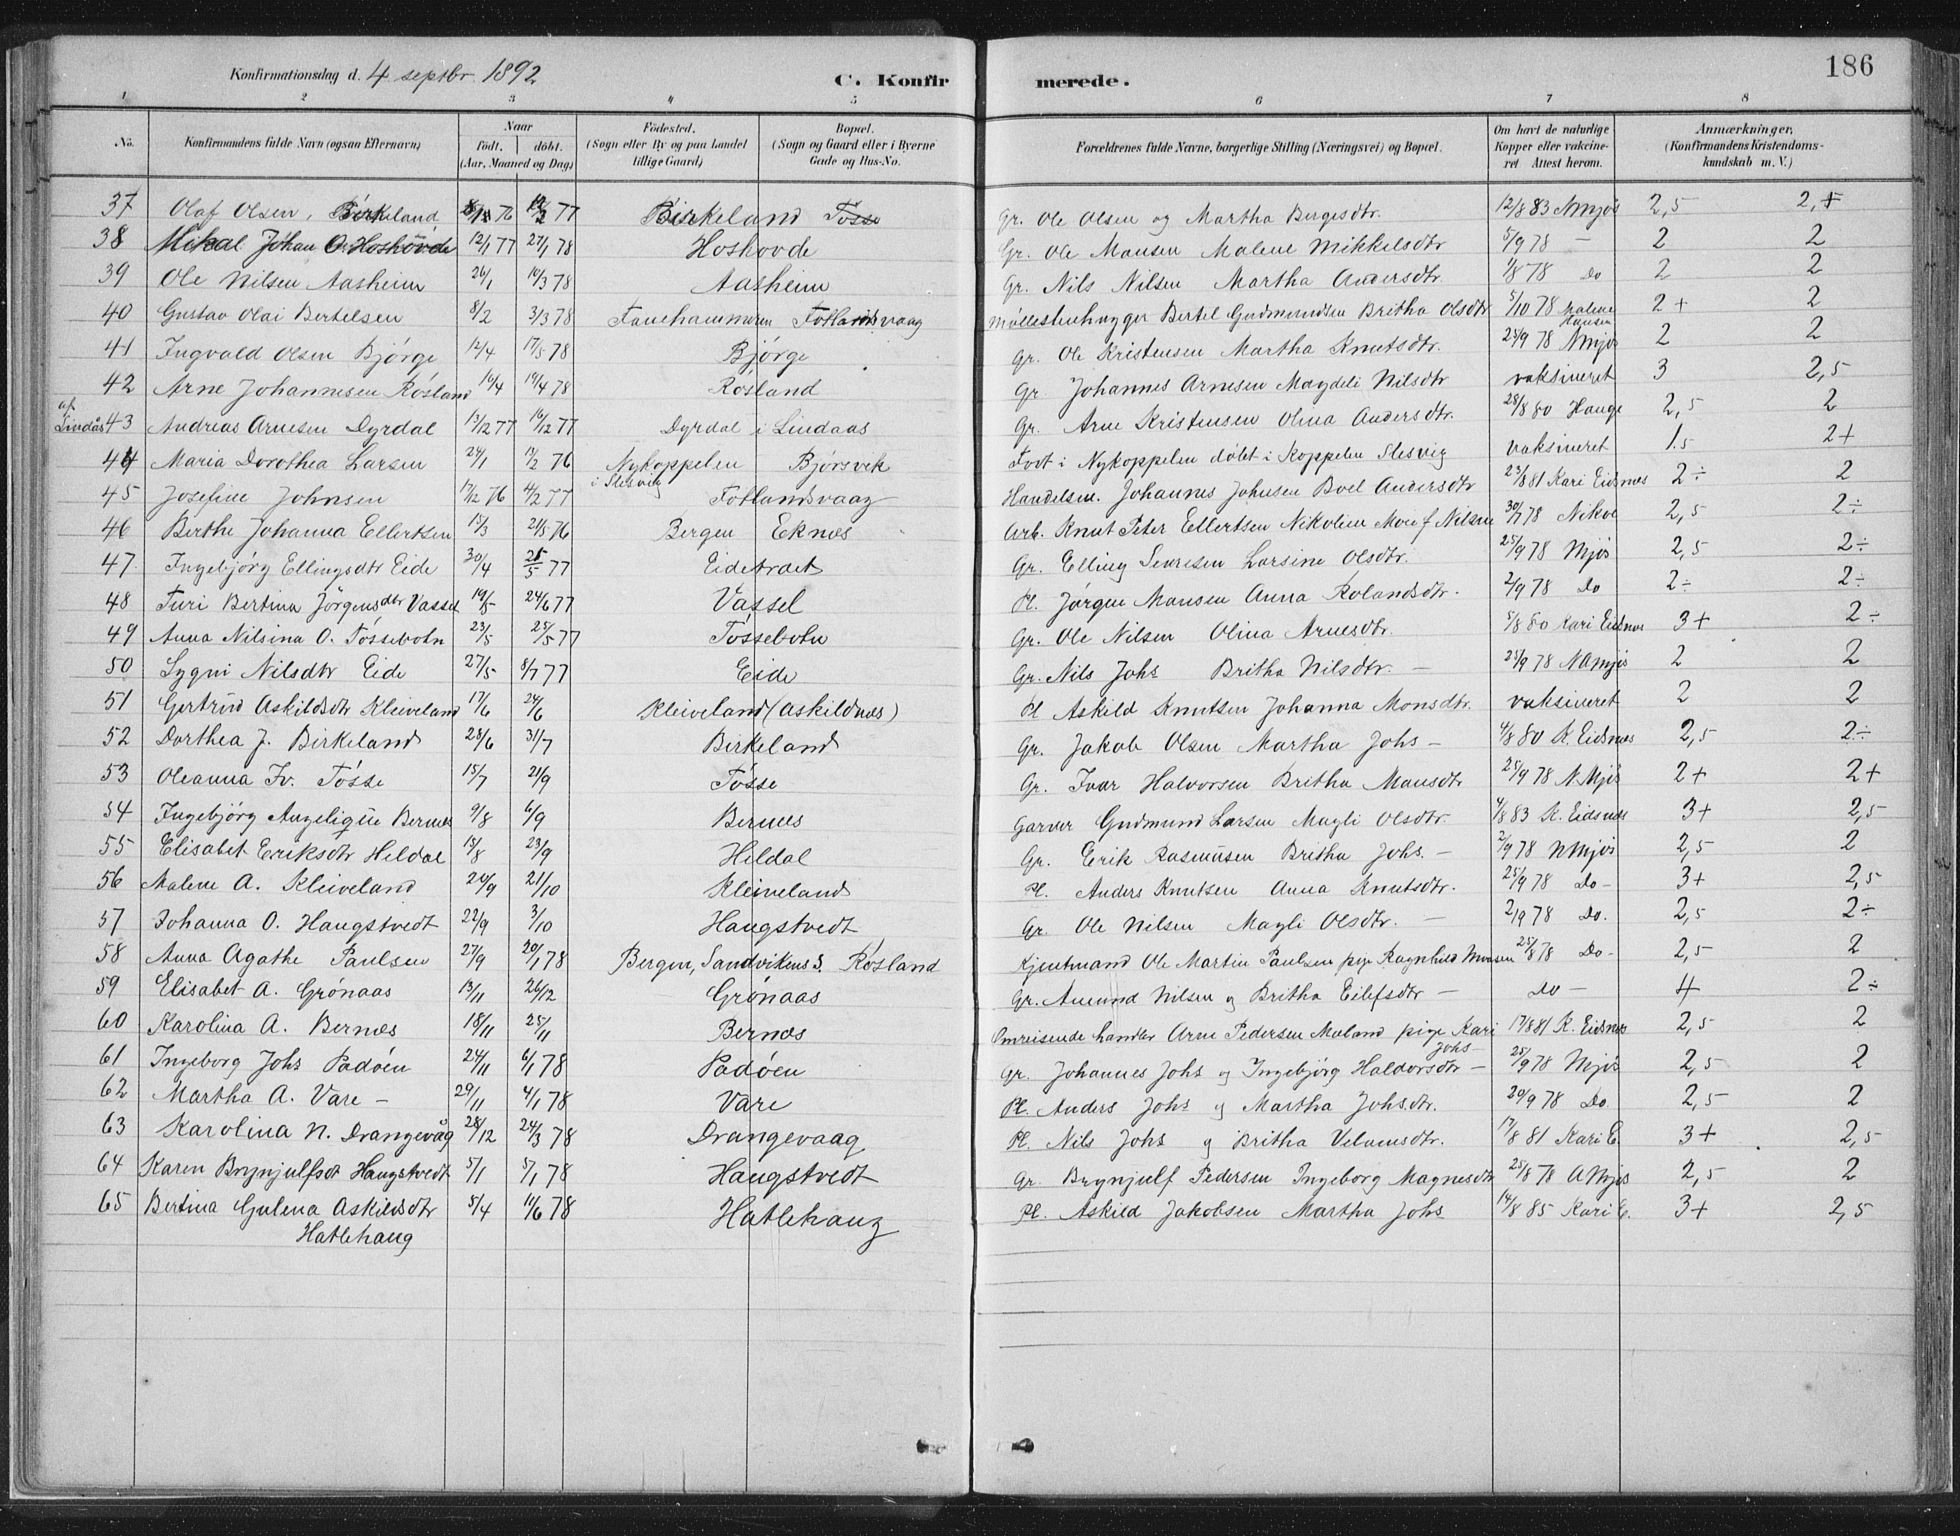 Konfirmationsdag d. 4 septbr. 1892 C. Konfirmerede. 186
1 2 3 4 5 6 7 8
No. Konfirmandens fulde Navn (ogsaa Efternavn) Naar födt. döbt. (Aar, Maaned og Dag) Födested. (Sogn eller By og paa Landet tillige Gaard) Bopæl. (Sogn og Gaard eller i Byerne Gade og Hus-No. Forældrenes fulde Navne, borgerlige Stilling (Næringsvei) og Bopæl. Om havt de naturlige Kopper eller vakcineret Attest herom. Anmærkninger, (Konfirmandens Kristendomskundskab m. V.)
37 Olaf Olsen, Birkeland 76 77 Birkeland Tösse Gr. Ole Olsen og Martha Bergesdtr. 12/8 83 NMjøs 2,5 2,+
38 Mikal Johan O. Hoshovde 12/1 77 27/1 78 Hoshovde Gr. Ole Mansen Malene Mikkelsdtr 5/9 78 — 2 2
39 Ole Nilsen Aasheim 26/1 10/3 78 Aasheim Gr. Nils Nilsen Martha Andersdtr 1/8 78 Do 2 2
40 Gustav Olai Bertelsen 8/2 3/3 78 Fanehammeren Fotlandsvaag Møllestenhugger Bertel Gudmundsen Britha Olsdtr 5/10 78 Malene Hansen 2+ 2
41 Ingvald Olsen Bjørge 12/4 17/5 78 Bjørge Gr. Ole Kristensen Martha Knutsdtr. 25/9 78 NMjøs 2 2
42 Arne Johannesen Rösland 10/4 19/4 78 Rosland Gr Johannes Arnesen Magdeli Nilsdtr vaksineret 3 2,5
af Lindås 43 Andreas Arnesen Dyrdal 13/12 77 16/12 77 Dyrdal i Lindaas Gr. Arne Kristensen Olina Andersdtr. 28/8 80 Hauge 2,5 2
44 Maria Dorothea Larsen 24/1 11/2 76 Nykoppelen i Slesvig Bjørsvik Fodt i Nykoppelen döbt i Koppelen Slesvig vaksineret 1.5 2+
45 Josefine Johnsen 17/12 76 4/2 77 Fotlandsvaag Handelsm. Johannes Johnsen Boel Andersdtr 23/8 81 Kari Eidsnes 2÷ 2
46 Berthe Johanna Ellertsen 15/3 21/5 76 Bergen Eknes Arb. Knut Peter Ellertsen Nikoline 30/7 78 2,5 2÷
47 Ingebjörg Ellingsdtr Eide 30/4 25/5 77 Eidetræet Gr. Elling Larsine Olsdtr. 25/9 78 Mjøs 2,5 2÷
48 Turi Bertina Jörgensdtr Vassel 19/5 24/6 77 Vassel Pl. Jørgen Mansen Anna Rolandsdtr. 2/9 78 Do 2÷ 2÷
49 Anna Nilsina O. Tössebotn 23/5 25/5 77 Tössebotn Gr. Ole Nilsen Olina Arnesdtr. 5/8 80 Kari Eidsnes 3+ 2÷
50 Sygni Nilsdtr Eide 27/5 8/7 77 Eide Gr. Nils Johs Britha Nilsdtr. — 25/9 78 NMjøs 2 2
51 Gertrud Askildsdtr Kleiveland 17/6 24/6 Kleiveland (Askildnes) Pl Askild Knutsen Johanna Monsdtr. vaksineret 2 2
52 Dorthea J. Birkeland 28/6 31/7 Birkeland Gr. Jakob Olsen Martha Johs — 4/8 80 K. Eidsnes 2,5 2÷
53 Oleanna Iv. Tösse 15/7 21/9 Tösse Gr. Ivar Halvorsen Britha Mansdtr 25/9 78 N. Mjøs 2+ 2+
54 Ingebjörg Angelique Bernes 9/8 6/9 Bernes Garver Gudmund Larsen Magli Olsdtr. 4/8 83 K. Eidsnes 3+ 2,5
55 Elisabet Eriksdtr Hildal 15/8 23/9 Hildal Gr. Erik Rasmusen Britha Johs. — 2/9 78 NMjøs 2,5 2
56 Malene A. Kleiveland 20/9 21/10 Kleiveland Pl. Anders Knutsen Anna Knutsdtr. 25/9 78 Do- 3+ 2,5
57 Johanna O. Haugstvedt 22/9 3/10 Haugstvedt Gr. Ole Nilsen Magli Olsdtr. — 2/9 78 Do. 2,5 2÷
58 Anna Agathe Paulsen 27/9 20/1 78 Bergen, Sandvikens S. Rosland Kjentmand Ole Martin Paulsen pige Ragnhild Monsen 25/8 78 Do- 2,5 2
59 Elisabet A. Grönaas 13/11 26/12 Grönaas Gr. Amund Nilsen og Britha Eilefsdtr — Do — 4 2÷
60 Karolina A. Bernes 18/11 25/11 Bernes Omreisende handler Arne Pedersen Moland pige Kari Johs- 17/8 81 K. Eidsnes 2,5 2
61 Ingeborg Johs Padöen 24/11 6/1 78 Padöen Gr. Johannes Johs og Ingebjörg Haldorsdtr — 25/9 78 Mjøs 2,5 2
62 Martha A. Vare — 29/11 4/1 78 Vare Pl. Anders Johs og Martha Johsdtr. 20/9 78 Do. 2,5 2
63 Karolina N. Drangevåg 28/12 24/3 78 Drangevaag Pl. Nils Johs og Britha Velomsdtr. 17/8 81 Kari E. 3+ 2,5
64 Karen Brynjulfsdt Haugstvedt 5/1 5/1 78 Haugstvedt Gr Brynjulf Pedersen Ingeborg Magnesdtr 25/8 78 AMjøs 2,5 2
65 Bertina Gulena Askildsdtr 5/4 11/6 78 Hatlehaug Pl. Askild Jakobsen Martha Johs 14/8 85 Kari E. 3+ 2,5
Hatlehaug